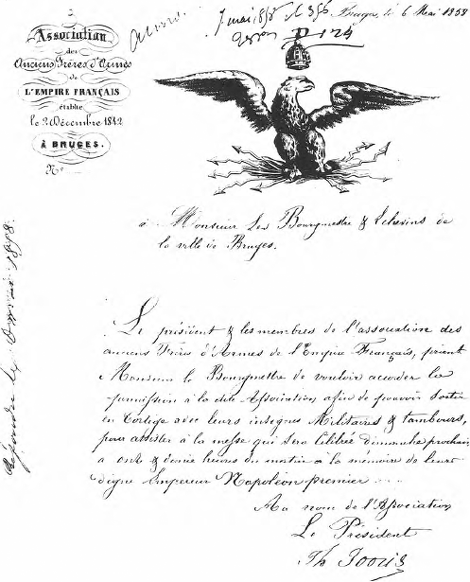 Association
des
Anciens Frères d'Armes
de
L'EMPIRE FRANÇAIS
établie
le 2 Décembre 1842
À BRUGES.
N°
7 mai 1858 Bruges, le 6 Mai 1858
à Monsieur Les Bourgmestre & Echevins de
la ville de Bruges.
Le président & les membres de l'association des
anciens Frères d'Armes de l'Empire Français, prient
Monsieur le Bourgmestre de vouloir accorder la
permission à la dite Association afin de pouvoir sortir
en Cortège avec leurs insignes Militaires & tambours,
pour assister à la messe qui sera célébrée dimanche prochain
a onze & demie heures du matin à la mémoire de leur
digne Empereur Napoléon premier
Au nom de l'Association
Le Président
Th Jooris